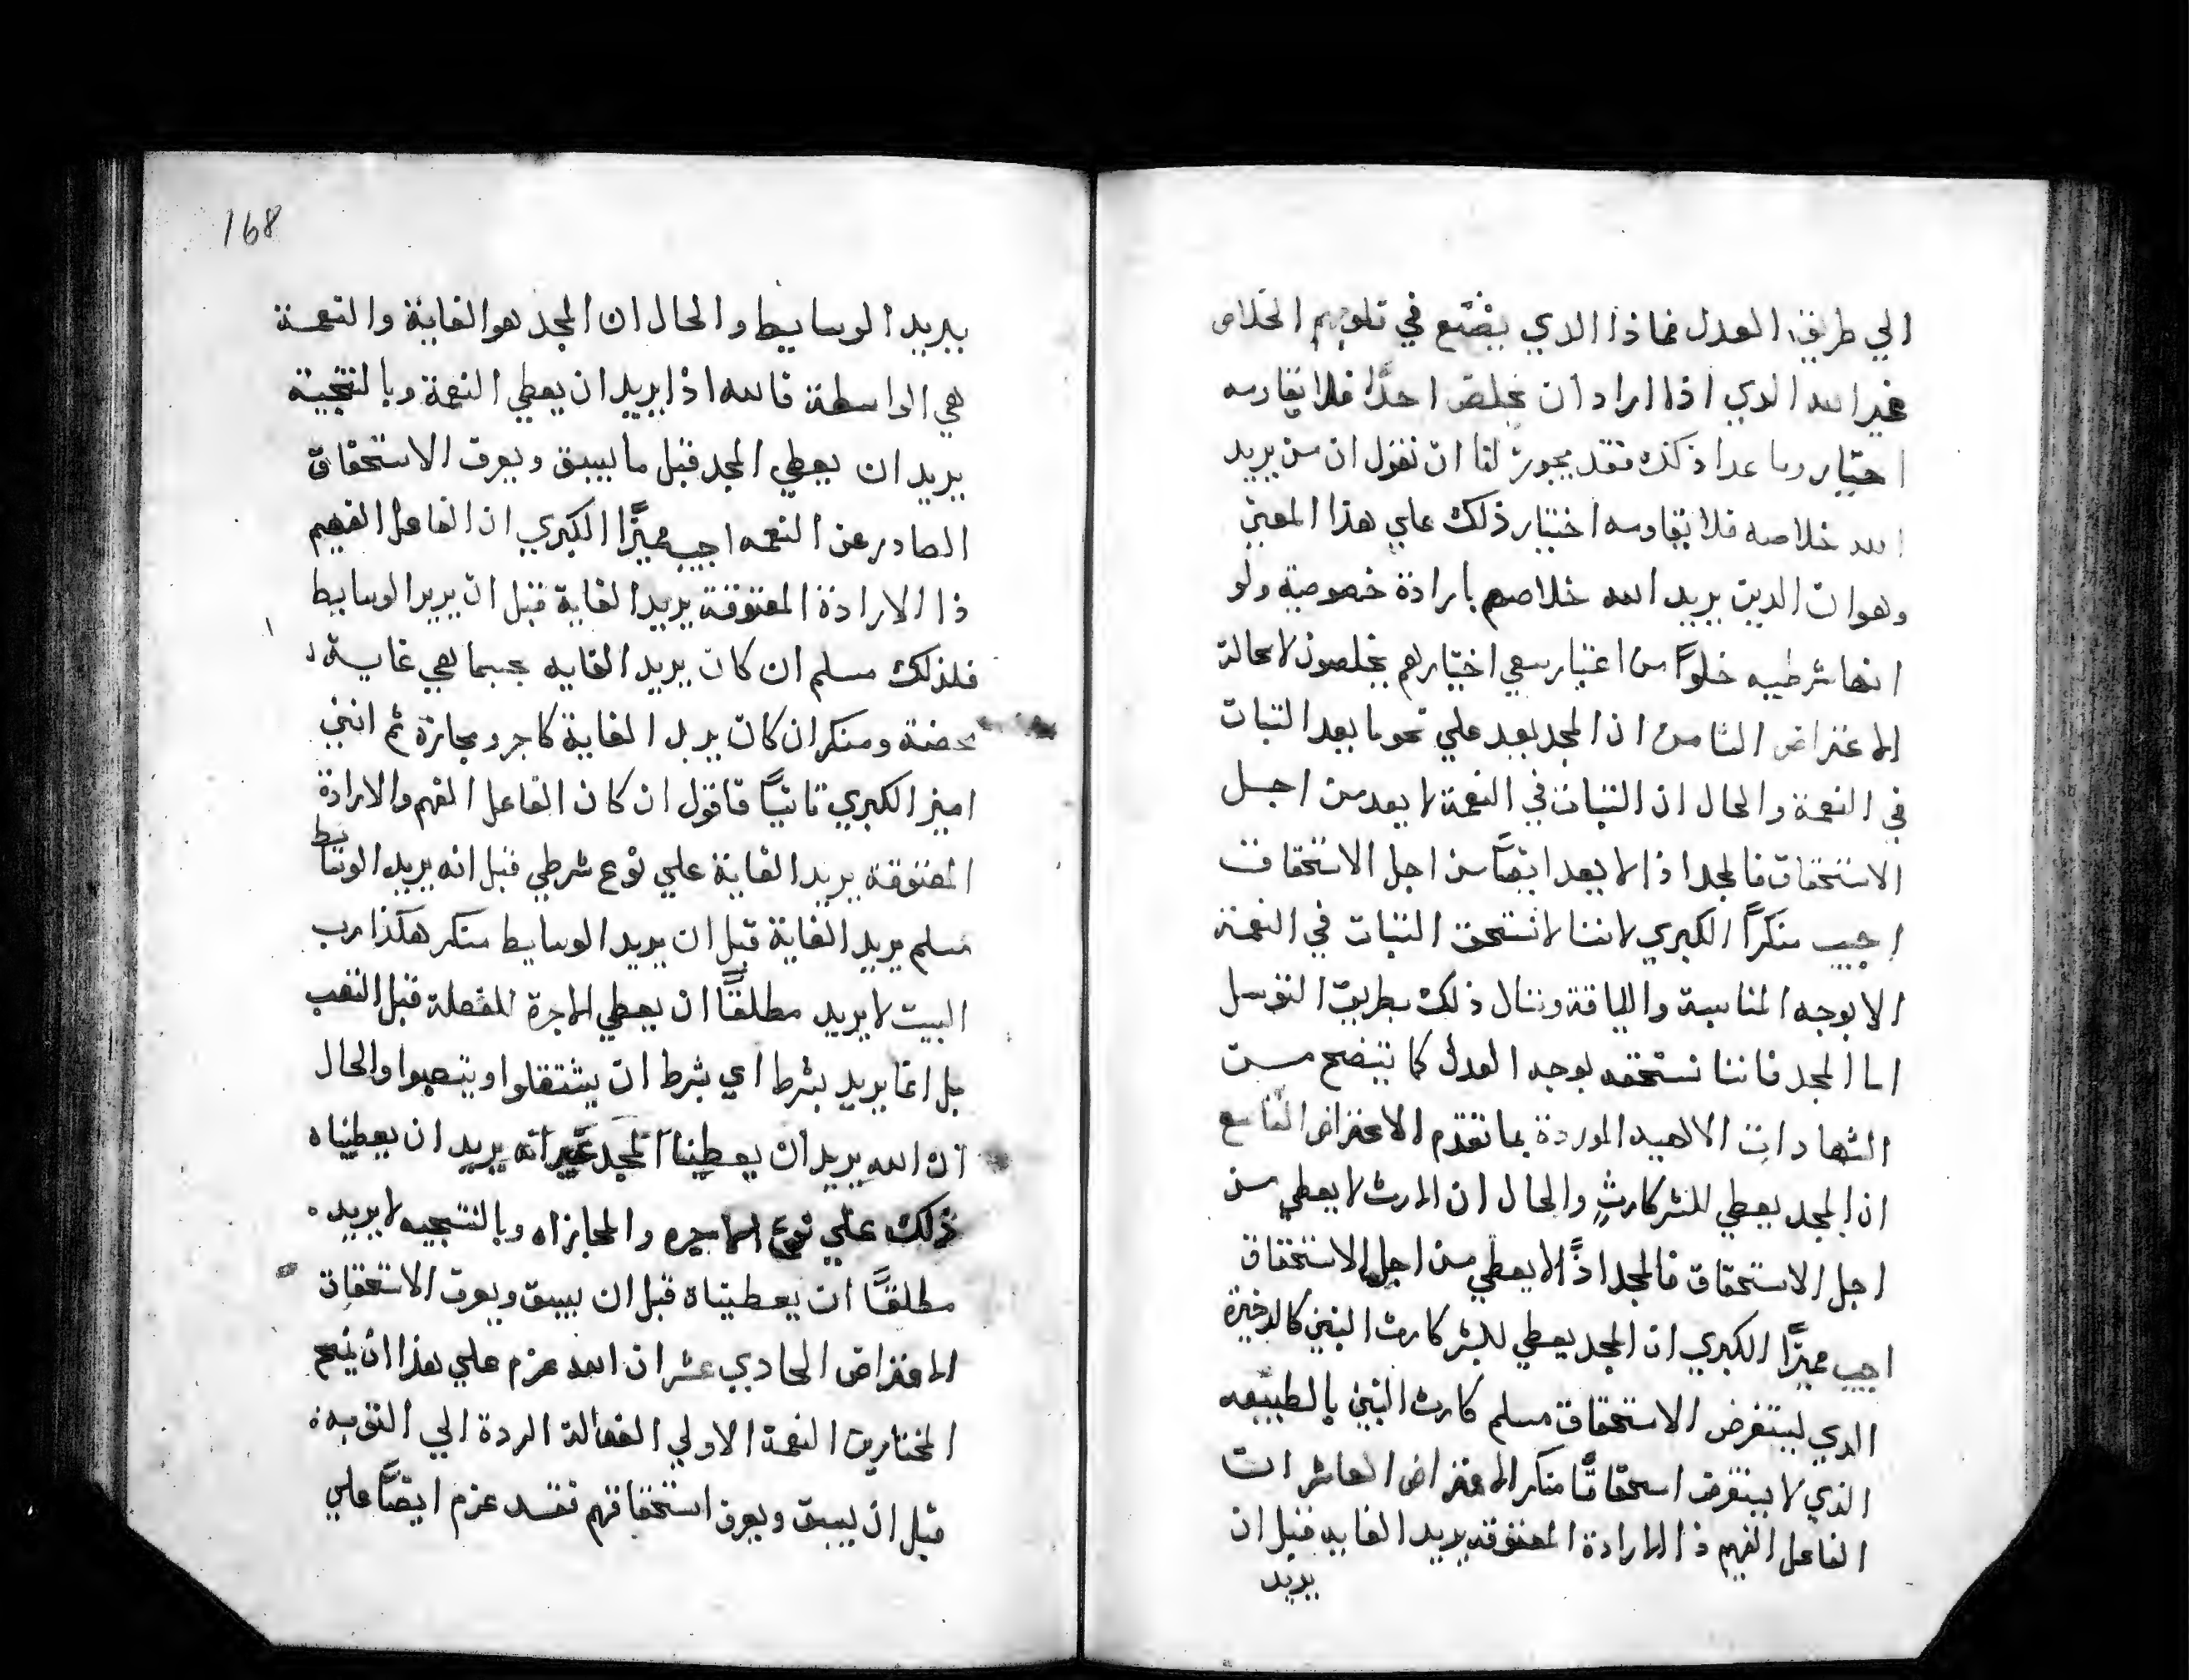 الي طريق العدل فماذا الدي يصنع في قلوبهم الخلاص
غير الله الدي اذا اراد ان يخلص احدًا فلا يقاومه
اختيار وما عدا ذلك فقد يجوز لنا ان نقول ان من يريد
الله خلاصه فلا يقاومه اختيار ذلك علي هذا المعني
وهو ان الدين يريد الله خلاصهم بارادة خصوصية ولو
انها شرطيه خلوًا من اعتبار سعي اختيارهم يخلصون لا محالة
الاعتراض الثامن ان المجد يعد علي نحو ما يعد التبات
في النعمة والحال ان التبات في النعمة لا يعد من اجل
الاستحقاق فالمجد اذا لا يعد ايضًا من اجل الاستحقاق
اجيب منكرًا الكبري لاننا لا نستحق التبات في النعمة
الا بوجه المناسبة واللياقة وننال ذلك بطريق التوسل
اما المجد فاننا نستحقه بوجه العدل كما يتضح من
الشهادات الالهيه الموردة بما تقدم الاعتراض التاسع
ان المجد يعطي للبشر كارثٍ والحال ان الارث لا يعطي من
اجل الاستحقاق فالمجد اذًا لا يعطي من اجل الاستحقاق
اجيب مميزًا الكبري ان المجد يعطي للبشر كارث البنين كالدخيرة
الدي ليستفرض الاستحقاق مسلم كارث البنين بالطبيعه
الذي لا يستفرض استحقاقًا منكر الاعتراض العاشر ان
الفاعل الفهيم ذا الارادة المعتوقه يريد الغايه قبل ان
يريد
168
يريد الوسايط والحال ان المجد هو الغاية والنعمة
هي الواسطة فالله اذا يريد ان يعطي النعمة وبالنتيجة
يريد ان يعطي المجد قبل ما يسبق ويعرف الاستحقاق
الصادر عن النعمه اجيب مميزًا الكبري ان الفاعل الفهيم
ذا الارادة المعتوقة يريد الغاية قبل ان يريد الوسايط
فلذلك مسلم ان كان يريد الغايه بحسبما هي غاية
محضة ومنكر ان كان يريد الغاية كاجر ومجازة ثم انني
اميز الكبري ثانيًا فاقول ان كان الفاعل الفهم والارادة
المعتوقة يريد الغاية علي نوع شرطي قبل انه يريد الوسايط
مسلم يريد الغاية قبل ان يريد الوسايط منكر هكذا رب
البيت لا يريد مطلقًا ان يعطي الاجرة للفعلة قبل التعب
بل انما يريد بشرط اي بشرط ان يشتغلوا ويتعبوا والحال
ان الله يريد ان يعطينا المجد غير انه يريد ان يعطيناه
ذلك علي نوع الاجره والمجازاه وبالنتيجيه لا يريد
مطلقًا ان يعطيناه قبل ان يسبق ويعرف الاستحقاق
الاعتراض الحادي عشر ان الله عزم علي هذا ان يمنح
المختارين النعمة الاولي الفعالة الردة الي التوبه
قبل ان يسبق ويعرف استحقاقهم فقد عزم ايضًا علي